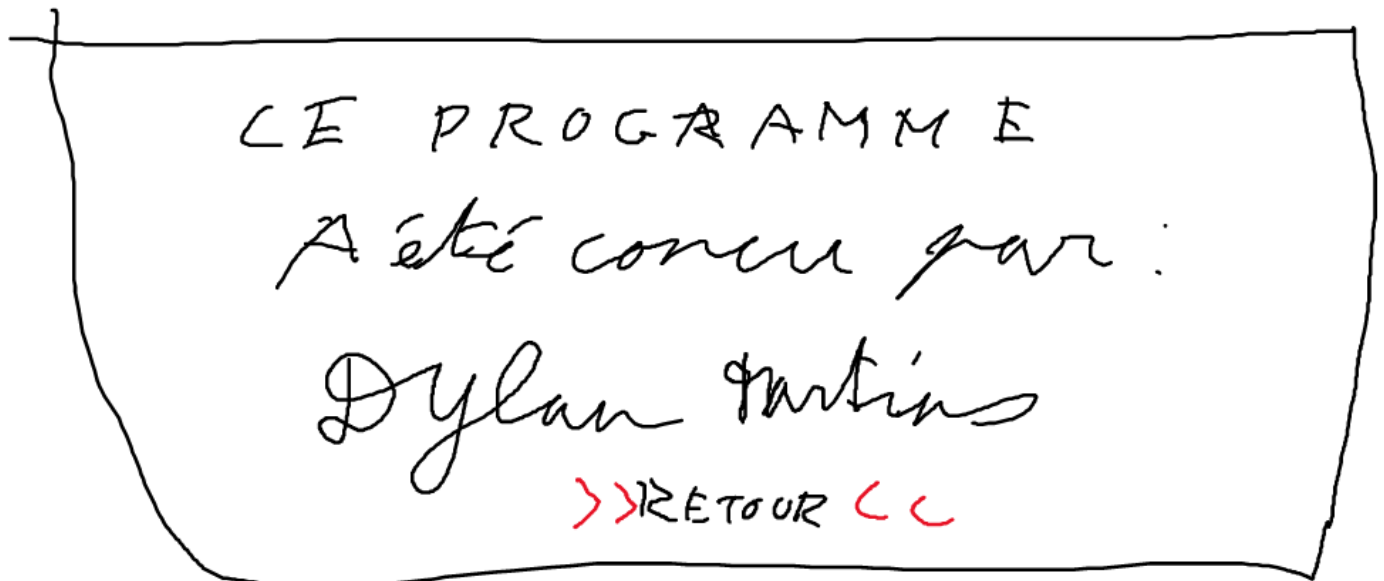 CE PROGRAMME
A été concu par :
Dylan Martins
>>RETOUR <<